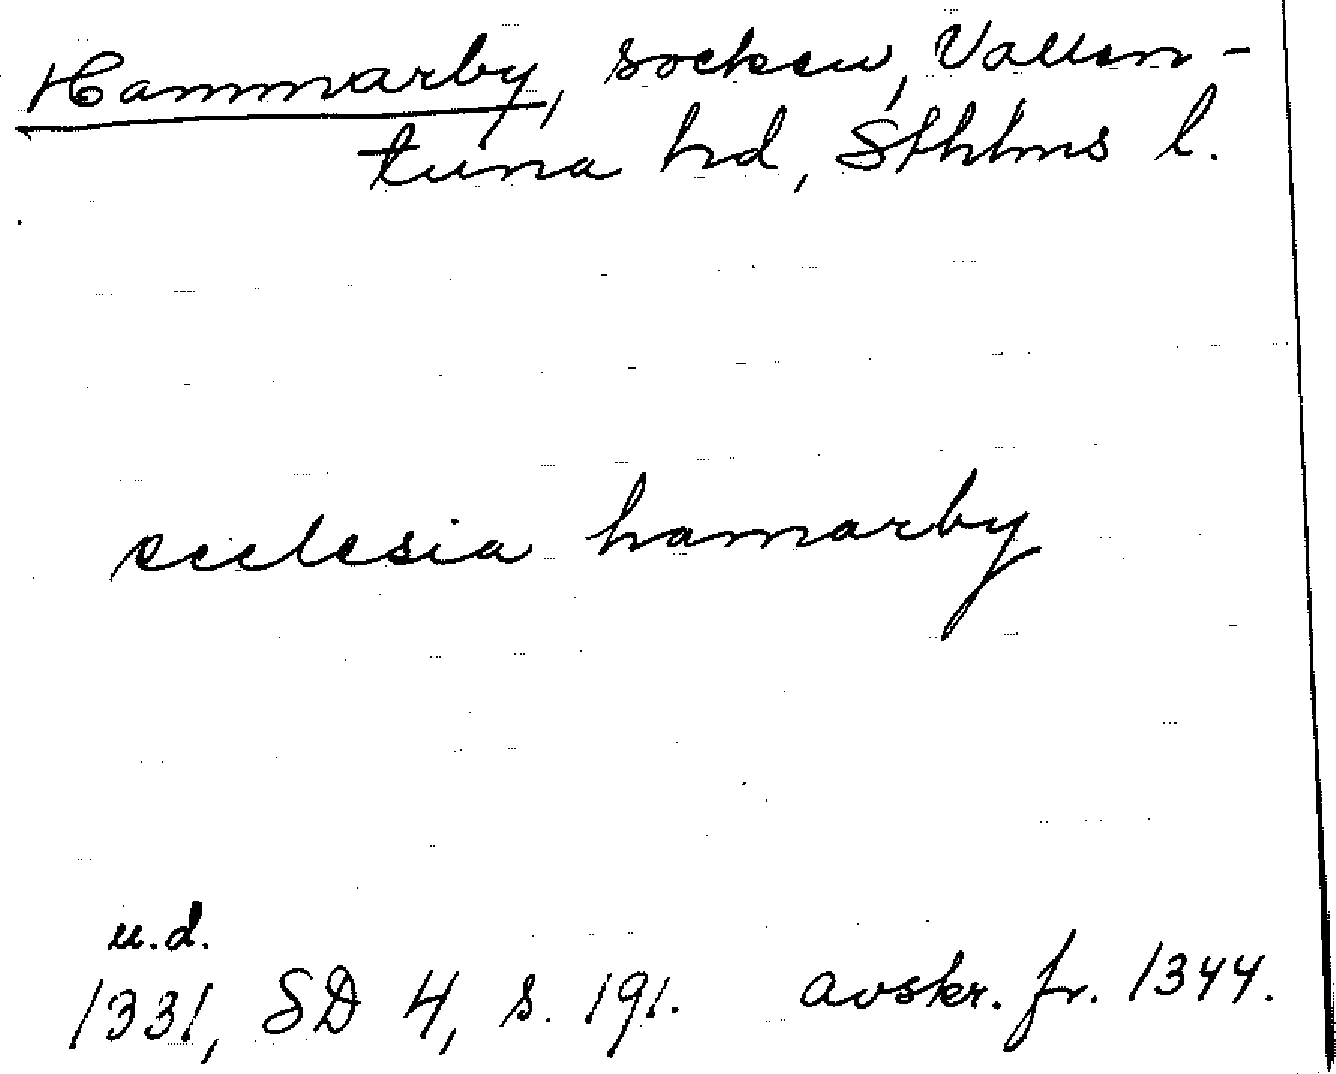 Hammarby, socken, Vallen-
tuna hd, Sthlms l.
ecclesia hamarby
u.d.
1331, SD 4, s. 191. avskr. fr. 1344.